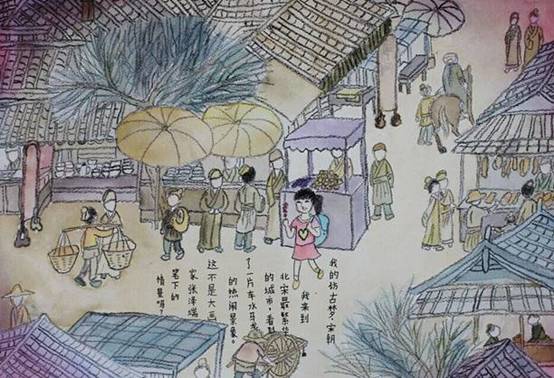 我的仿古梦、宋朝
我来到
北宋最繁华
的城市，看
了一片车水马龙
的热闹景象。
这不是大画
家张泽端
笔下的
情景吗？